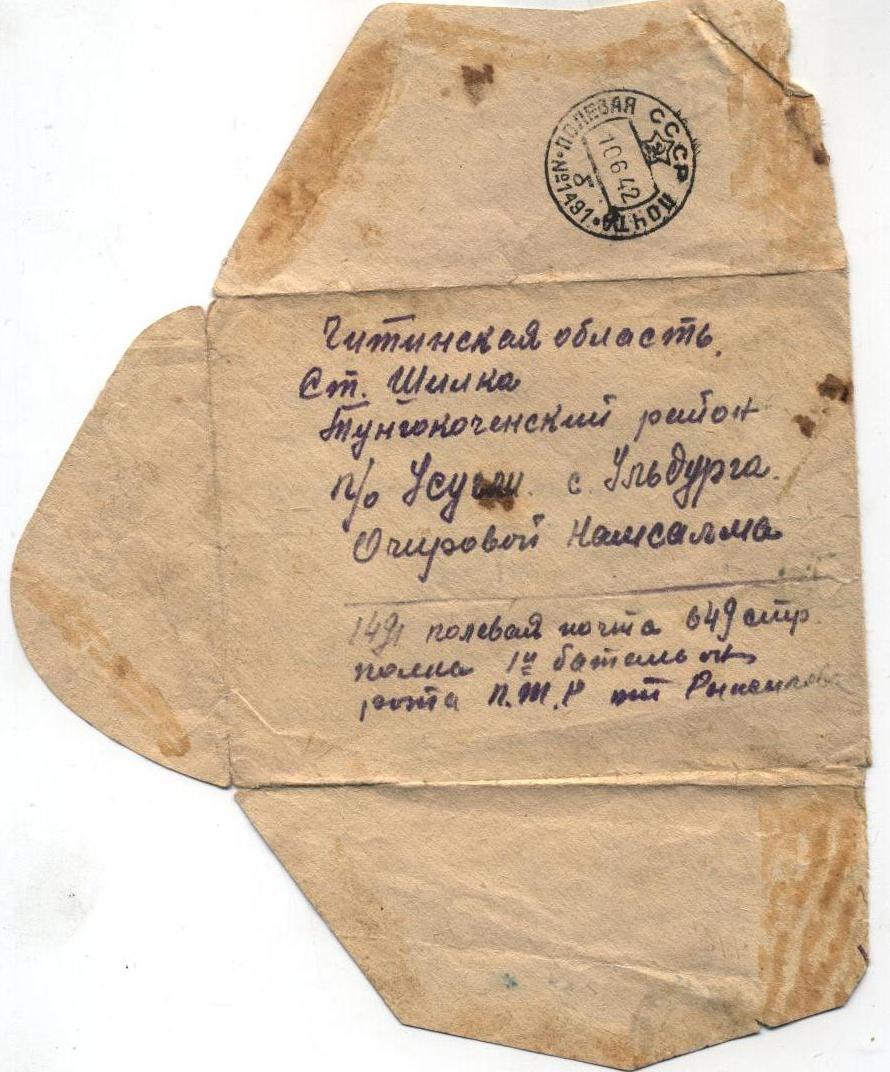 СССР ПОЛЕВАЯ ПОЧТА №1491
10 6 42
б
Читинская область.
Ст. Шилка
Тунгокоченский район
п/о Усугли с. Ульдурга.
Очировой Намсалма
1491 полевая почта 649 стр
полка 1й батальон
рота П.Т.Р от